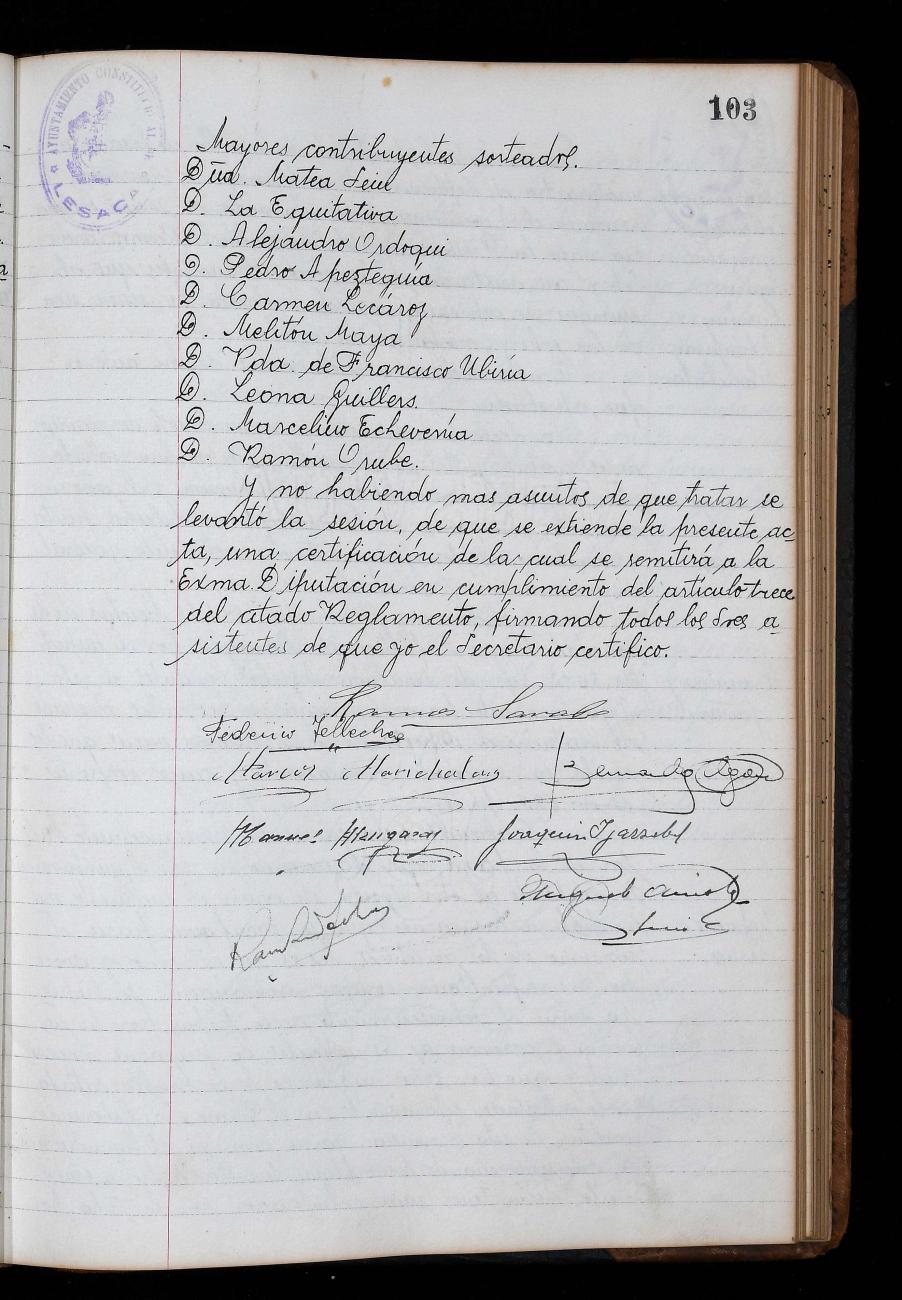 103
AYUNTAMIENTO CONSTITUCIONAL
LESACA
Mayores contribuyentes sorteados.
Dña. Matea Leiu
D. La Equitativa
D. Alejandro Ordoqui
D. Pedro Apezteguía
D. Carmen Lecároz
D. Melitón Maya
D. Vda. de Francisco Ubiría
D. Leona Guillers.
D. Marcelino Echeverría
D. Ramón Orube.
Y no habiendo mas asuntos de que tratar se
levantó la sesión, de que se extiende la presente ac-
ta, una certificación de la cual se remitirá a la
Exma. Diputación en cumplimiento del artículo trece
del atado Reglamento, firmando todos los Sres a-
sistentes de que yo el Secretario certifico.
Ramos
Federico Tellechea
Marcos Marichalar
Bernardo
Manuel
Joaquin Yarzabal
Miguel